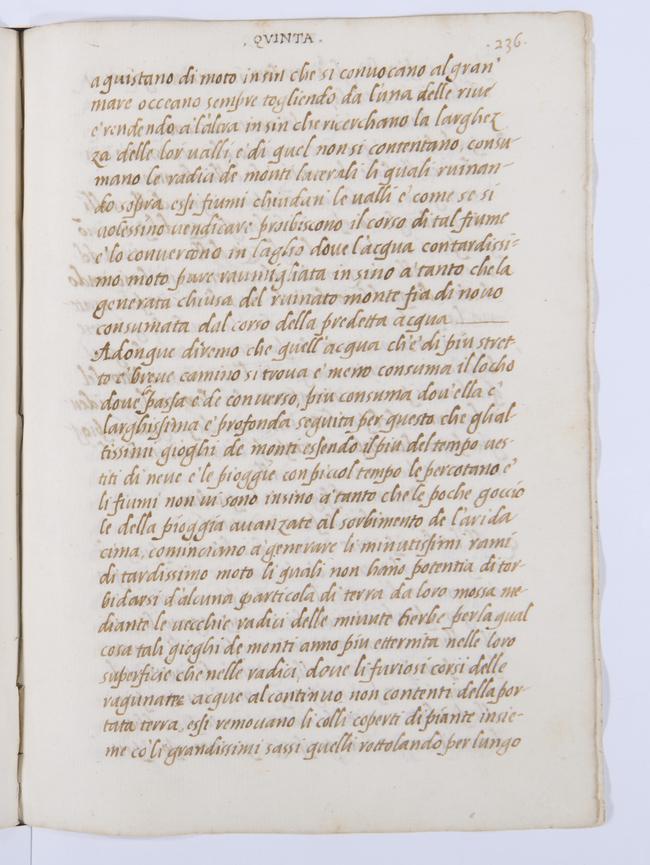 . QVINTA .
. 236 .
aquistano di moto insin che si convocano al gran'
mare occeano sempre togliendo da l'una delle rive
e' rendendo a l'altra insin che ricerchano la larghez
za delle lor valli, e di quel non si contentano, consu-
mano le radici de monti laterali li quali ruinan-
do sopra essi fiumi chiudan' le valli e' come se si
volessino vendicare proibiscono il corso di tal fiume
e' lo convertono in lagho dove l'acqua con tardissi-
mo moto pare raumigliata insino a' tanto che la
generata chiusa del ruinato monte fia di novo
consumata dal corso della predetta acqua
Adonque diremo che quell'acqua ch'è di piu stret-
to e' breve camino si trova e' meno consuma il locho
dove passa e' de converso, piu consuma dov'ella e'
larghissima e' profonda seguita per questo che glial-
tissimi gioghi de monti essendo il piu del tempo ves-
titi di neve e' le pioggie con piccol tempo le percotano e'
li fiumi non vi sono insino a' tanto che le poche goccio
le della pioggia avanzate al sorbimento de l'arida
cima, cominciano a' generare li minutissimi rami
di tardissimo moto li quali non hano potentia di tor-
bidarsi d'alcuna particola di terra da loro mossa me-
diante le vecchie radici delle minute herbe per la qual
cosa tali gioghi de monti anno piu etternita nelle loro
superficie che nelle radici, dove li furiosi corsi delle
ragunatte acque al continuo, non contenti della por-
tata terra, essi removano li colli coperti di piante insie-
me co' li grandissimi sassi quelli rottolando per lungo